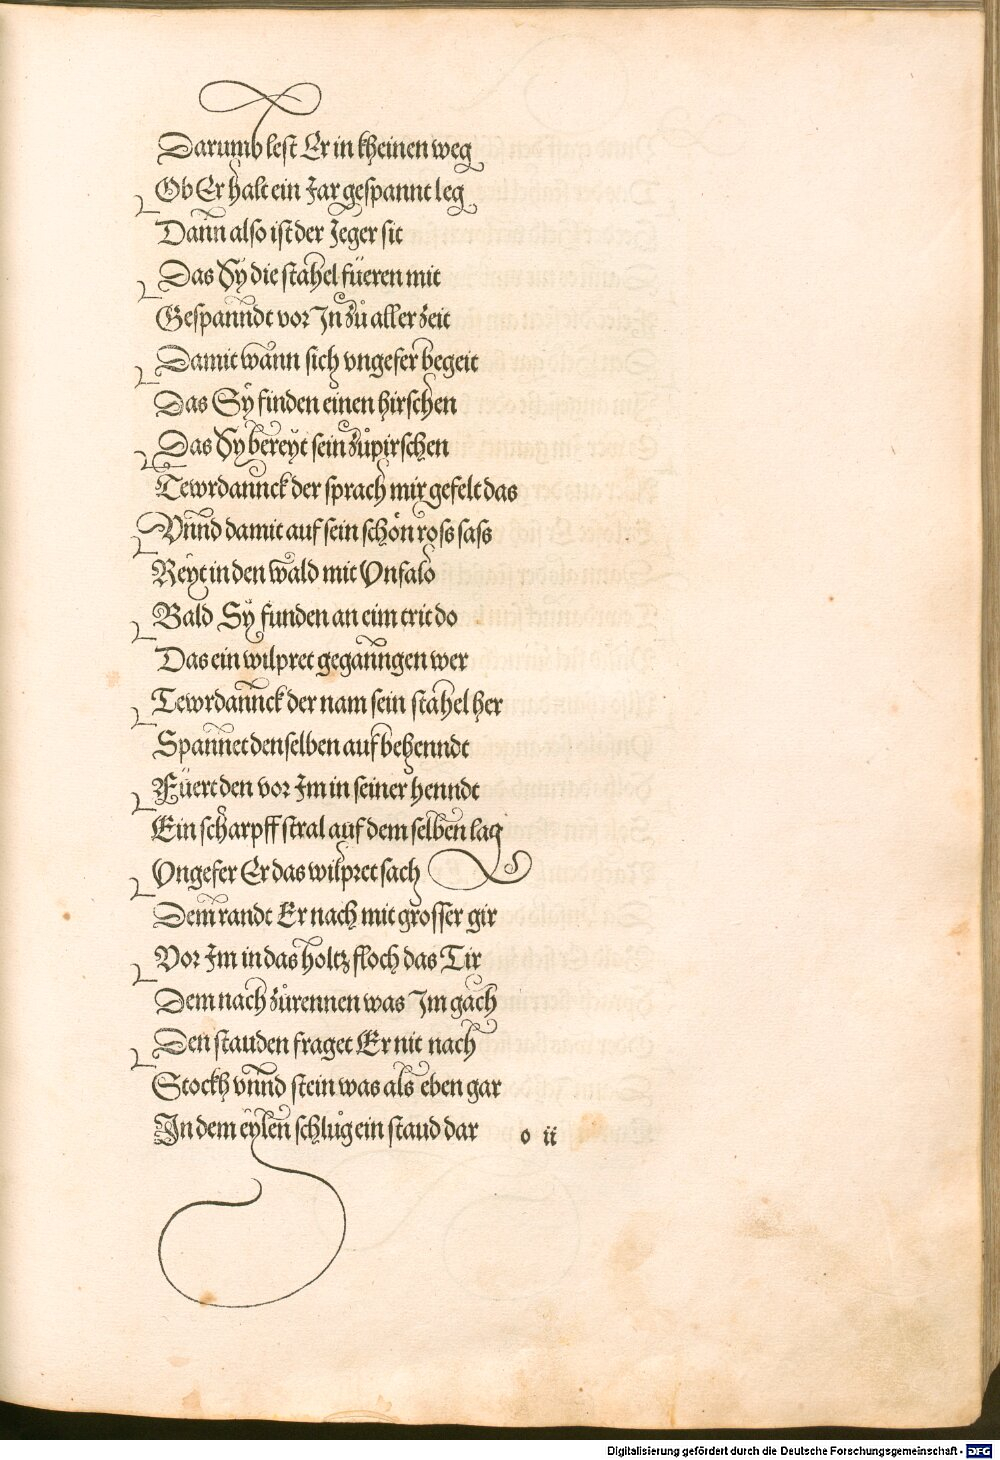 Darumb lest Er in kheinen weg
Ob Er halt ein Jar gespannt leg
Dann also ist der Jeger sit
Das Sÿ die stahel füeren mit
Gespanndt vor In zů aller zeit
Damit wann sich vngefer begeit
Das Sÿ finden einen hirschen
Das Sy bereyt sein zůpirschen
Tewrdannck der sprach mir gefelt das
Vnnd damit auf sein schön ross sass
Reyt in den wald mit Vnfalo
Bald Sÿ funden an eim trit do
Das ein wilpret geganngen wer
Tewrdannck der nam sein stahel her
Spannet denselben auf behenndt
Füert den vor Im in seiner henndt
Ein scharpff stral auf dem selben lag
Vngefer Er das wilpret sach
Dem randt Er nach mit grosser gir
Vor Im in das holtz floch das Tir
Dem nach zůrennen was Im gach
Den stauden fraget Er nit nach
Stockh vnnd stein was als eben gar
In dem eylen schlůg ein staud dar o ii
Digitalisierung gefördert durch die Deutsche Forschungsgemeinschaft - DFG